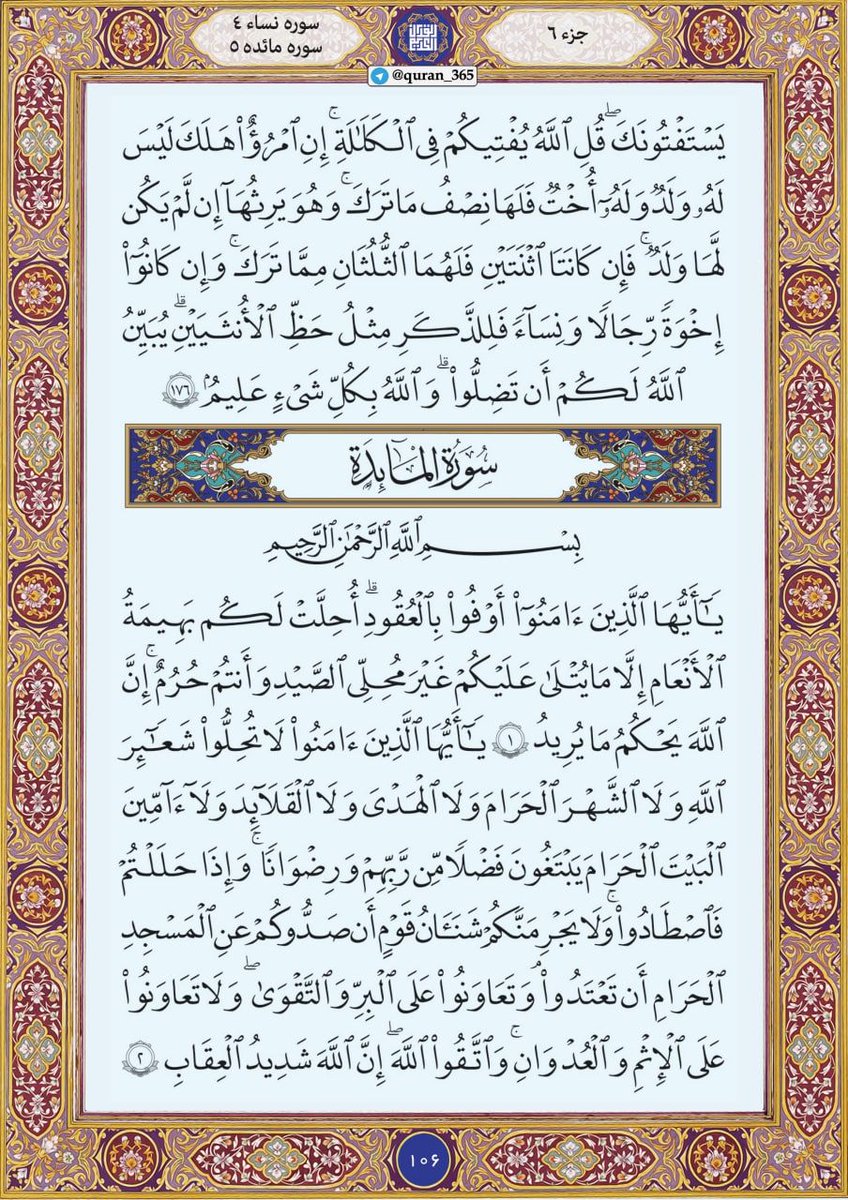 جزء ۶
سوره نساء ۴
سوره مائده ۵
@quran_365
يَسۡتَفۡتُونَكَۖ قُلِ ٱللَّهُ يُفۡتِيكُمۡ فِي ٱلۡكَلَٰلَةِۚ إِنِ ٱمۡرُؤٌاْ هَلَكَ لَيۡسَ
لَهُۥ وَلَدٞ وَلَهُۥٓ أُخۡتٞ فَلَهَا نِصۡفُ مَا تَرَكَۚ وَهُوَ يَرِثُهَآ إِن لَّمۡ يَكُن
لَّهَا وَلَدٞۚ فَإِن كَانَتَا ٱثۡنَتَيۡنِ فَلَهُمَا ٱلثُّلُثَانِ مِمَّا تَرَكَۚ وَإِن كَانُوٓاْ
إِخۡوَةٗ رِّجَالٗا وَنِسَآءٗ فَلِلذَّكَرِ مِثۡلُ حَظِّ ٱلۡأُنثَيَيۡنِۗ يُبَيِّنُ
ٱللَّهُ لَكُمۡ أَن تَضِلُّواْۗ وَٱللَّهُ بِكُلِّ شَيۡءٍ عَلِيمُۢ ۱۷۶
سُورَةُ المَائِدَةِ
بِسۡمِ ٱللَّهِ ٱلرَّحۡمَٰنِ ٱلرَّحِيمِ
يَٰٓأَيُّهَا ٱلَّذِينَ ءَامَنُوٓاْ أَوۡفُواْ بِٱلۡعُقُودِۗ أُحِلَّتۡ لَكُم بَهِيمَةُ
ٱلۡأَنۡعَٰمِ إِلَّا مَا يُتۡلَىٰ عَلَيۡكُمۡ غَيۡرَ مُحِلِّي ٱلصَّيۡدِ وَأَنتُمۡ حُرُمٌۚ إِنَّ
ٱللَّهَ يَحۡكُمُ مَا يُرِيدُ ۱ يَٰٓأَيُّهَا ٱلَّذِينَ ءَامَنُواْ لَا تُحِلُّواْ شَعَٰٓئِرَ
ٱللَّهِ وَلَا ٱلشَّهۡرَ ٱلۡحَرَامَ وَلَا ٱلۡهَدۡيَ وَلَا ٱلۡقَلَٰٓئِدَ وَلَآ ءَآمِّينَ
ٱلۡبَيۡتَ ٱلۡحَرَامَ يَبۡتَغُونَ فَضۡلٗا مِّن رَّبِّهِمۡ وَرِضۡوَٰنٗاۚ وَإِذَا حَلَلۡتُمۡ
فَٱصۡطَادُواْۚ وَلَا يَجۡرِمَنَّكُمۡ شَنَـَٔانُ قَوۡمٍ أَن صَدُّوكُمۡ عَنِ ٱلۡمَسۡجِدِ
ٱلۡحَرَامِ أَن تَعۡتَدُواْۘ وَتَعَاوَنُواْ عَلَى ٱلۡبِرِّ وَٱلتَّقۡوَىٰۖ وَلَا تَعَاوَنُواْ
عَلَى ٱلۡإِثۡمِ وَٱلۡعُدۡوَٰنِۚ وَٱتَّقُواْ ٱللَّهَۖ إِنَّ ٱللَّهَ شَدِيدُ ٱلۡعِقَابِ ۲
۱۰۶